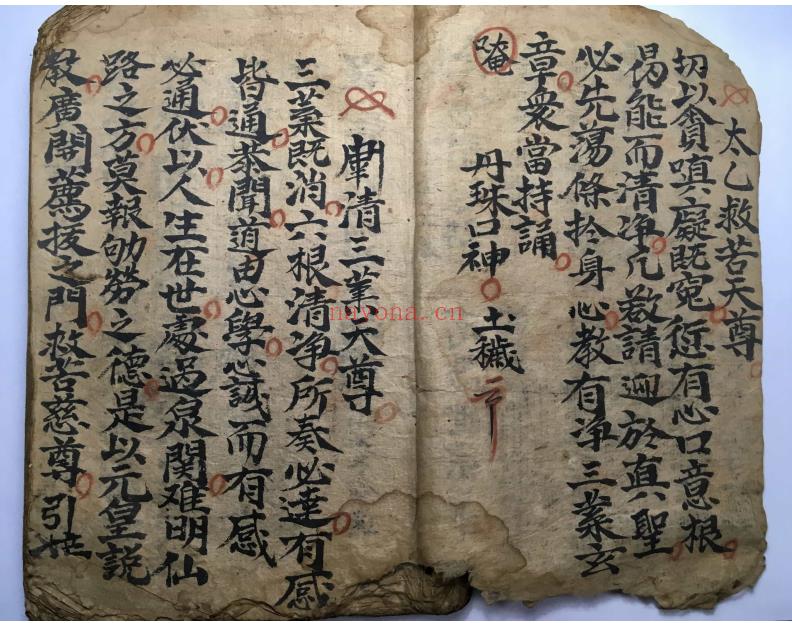 太乙救苦天尊
切以貪嗔癡既寃愆有心口意根
曷能而清净凢啟請迎於真聖
必先蕩滌扵身心教有净三業玄
章衆當持誦
唵
丹珠口神 土穢
清三業天尊
三業既消六根清净所奏必達有感
皆通恭聞道由心學心誠而有感
必通伏以人生在世處過泉関难明仙
路之方莫報劬勞之德是以元皇説
教廣開薦拔之門救苦慈尊引
nayona.cn